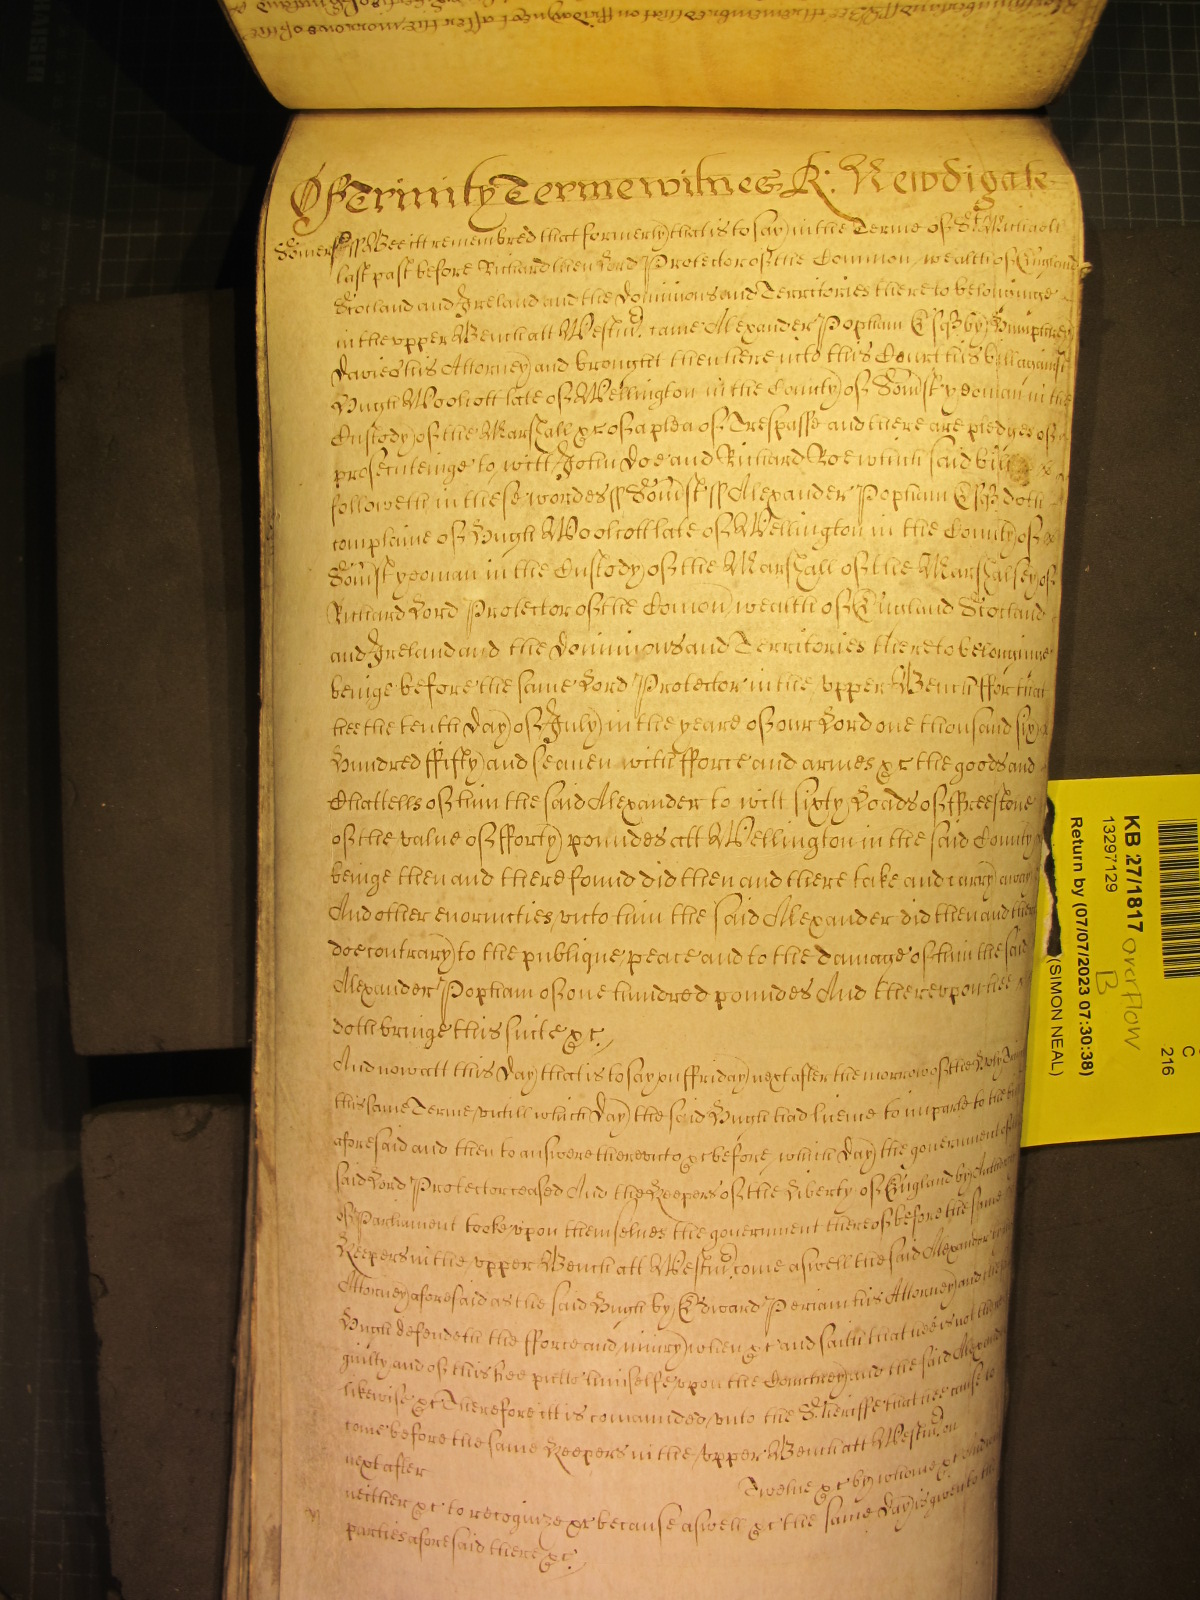 Of Trinity Terme witnes R: Newdigate
Somerst ss Bee itt remembred that formerly that is to say in the Terme of St. Michaell
last past before Richard then Lord Protector of the Common wealth of England
Scotland and Ireland and the Dominions and Territories thereto belonginge
in the vpper Bench att Westm came Alexander Popham Esqr by Humphrey
Davies his Attorney and brought then here into this Court his bill against
Hugh Woolcott late of Wellington in the County of Somst yeoman in the
Custody of the Marshall &c of a plea of Trespasse and there are pledges of
prosecuteinge to witt John Doe and Richard Roe which said bill
followeth in these wordes ss Somst ss Alexander Popham Esqr doth
complaine of Hugh Woolcott late of Wellington in the County of
Somst yeoman in the Custody of the Marshall of the Marshalsey of
Richard Lord Protector of the Comon wealth of England Scotland
and Ireland and the Dominions and Territories thereto belonginge
beinge before the same Lord Protector in the vpper Bench ffor that
hee the tenth day of July in the yeare of our Lord one thousand six
Hundred ffifty and seaven with fforce and armes &c the goods and
Chattells of him the said Alexander to witt sixty Loads of ffreestone
of the value of fforty poundes att Wellington in the said County
beinge then and there found did then and there take and carry away
And other enormities vnto him the said Alexander did then and there
doe contrary to the publique peace and to the damage of him the said
Alexander Popham of one hundred poundes And therevpon hee
doth bringe this suite &c.
And now att this day that is to say on ffriday next after the morrow of the Holy
this same Terme vntill which day the said Hugh had lycence to imparle to the bill
aforesaid and then to answere therevnto &c before which day the government of
said Lord Protector ceased And the Keepers of the Liberty of England by Authority
of Parliament tooke vpon themselves the government thereof before the same
Keepers in the vpper Bench att Westm come aswell the said Alexander
Attorney aforesaid as the said Hugh by Edward Periam his Attorney and the
Hugh defendeth the fforce and iniury when &c and saith that hee is not
guilty and of this hee putts himselfe vpon the Countrey and the said Alexander
likewise &c Therefore itt is comannded vnto the Sheriffe that hee cause to
come before the same Keepers in the vpper Bench att Westm on
next after Twelve &c by whome &c
neither &c to recognize &c because aswell &c the same day is given to the
parties aforesaid there &c.
KB 27/1817 overflow
13297129 B
Return by (07/07/2023 07:30:38)
(SIMON NEAL)
C
216